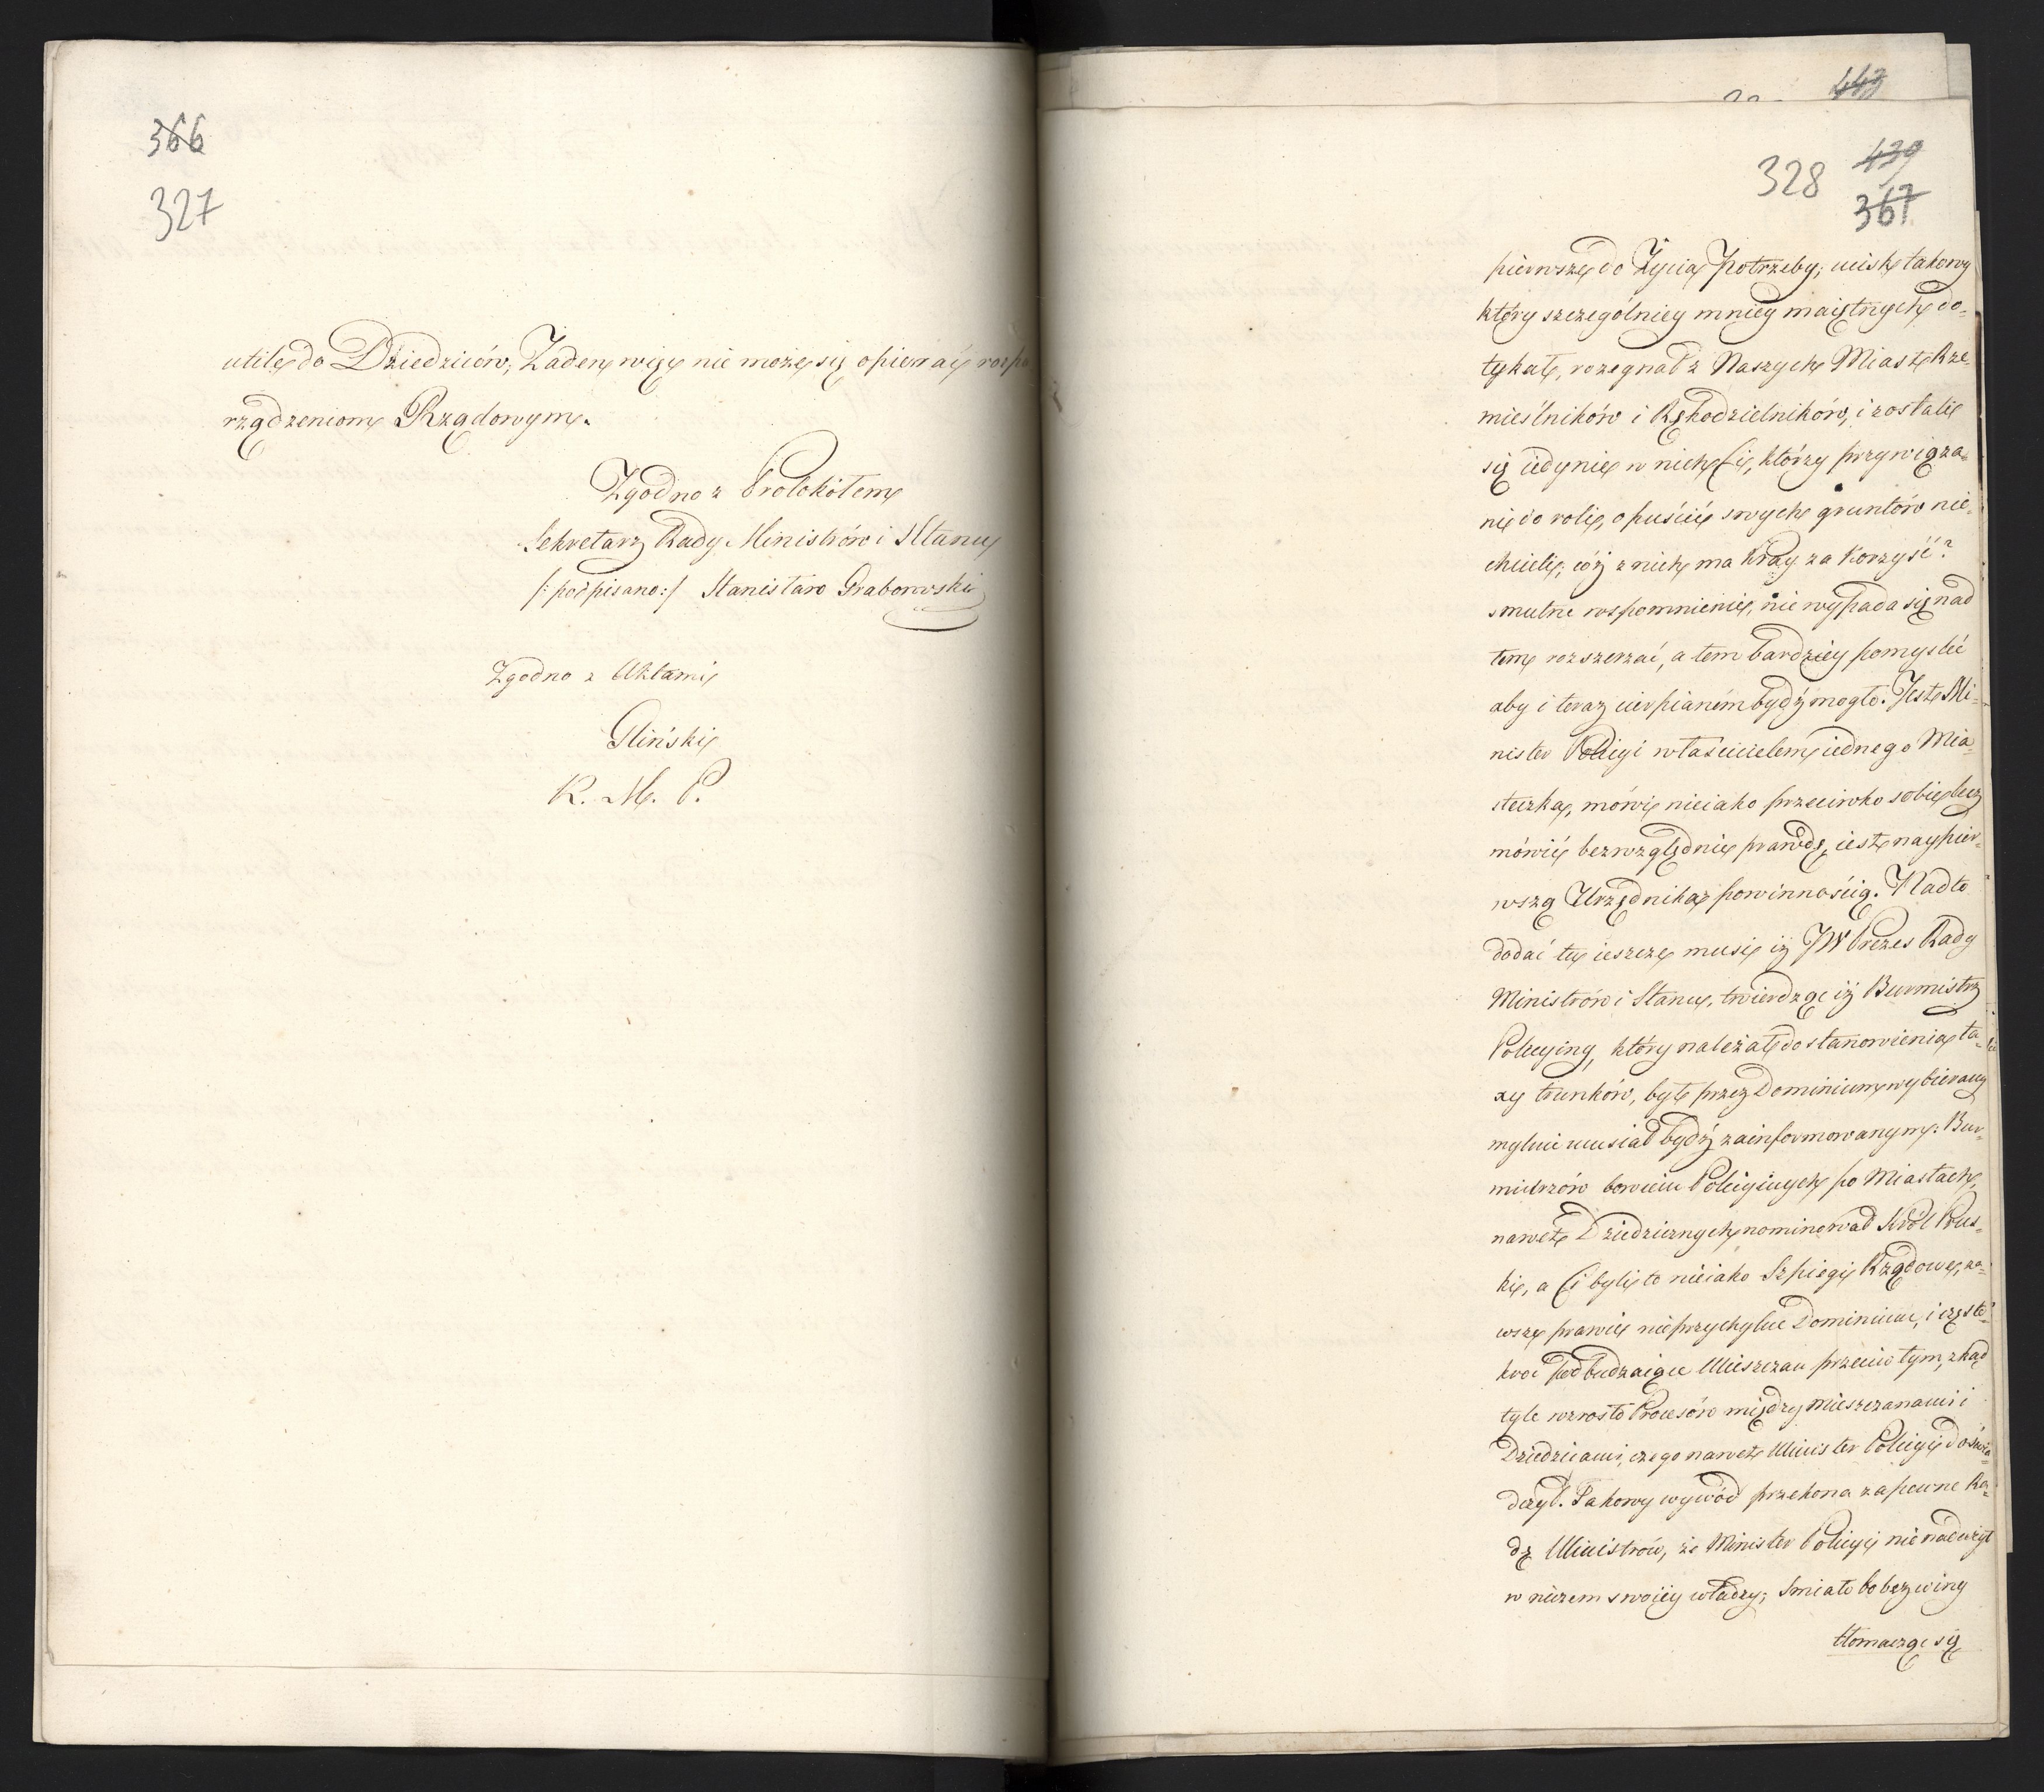 366
327
utile do Dziedziców, Żaden więc nie może się opierać rozpo
rządzeniom Rządowym.
Zgodno z Protokółem
Sekretarz Rady Ministrów i Stanu
/:podpisano:/ Stanisław Grabowski
Zgodno z Aktami
Gliński
R. M. P.
443
439
328
367
pierwsze do Życia Potrzeby; ucisk takowy
który szczególniey mniey maiętnych do-
tykał, rozegnał z Naszych Miast Rze-
mieślników i Rękodzielników, i zostali
się iedynie w nich Ci, którzy przywiąza-
ni do roli, opuścić swych gruntów nie-
chcieli; cóż z nich ma Kray za Korzyść?
smutne wspomnienie, nie wypada się nad
tem rozszerzać, a tem bardziey pomyslić
aby i teraz cierpianém bydź mogło. Jest Mi-
nister Policyi właścicielem iednego Mia-
steczka, mówi nieiako przeciwko sobie lecz
mówić bezwzględnie prawdę, iest naypier-
wszą Urzędnika powinnością. Nadto
dodać tu ieszcze musi iż JW Prezes Rady
Ministrów i Stanu, twierdząc iż Burmistrz
Policyiny, który należał do stanowienia ta-
xy trunków, był przez Dominium wybierany
mylnie musiał bydź zainformowanym. Bur-
mistrzów bowiem Policyinych po Miastach,
nawet Dziedzicznych nominował Król Prus-
ki, a Ci byli to nieiako Szpiegi Rządowe, za-
wsze prawie nieprzychylne Dominium, i często-
kroć podbudzaiące Mieszczan przeciw tym, zkąd
tyle wzrosło Procesów między Mieszczanami i
Dziedzicami, czego nawet Minister Policyi doświa-
dczył. Takowy wywód przekona zapewne Ra-
dę Ministrów, że Minister Policyi nie nadużył
w niczem swoiéy władzy; Smiało bo bez winy
tłomacząc się